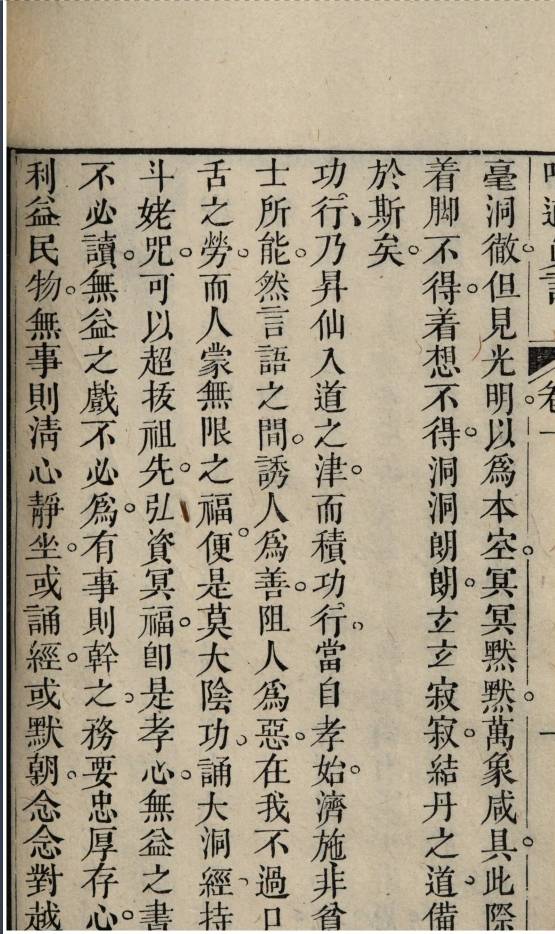 卷一　一
毫洞徹。但見光明。以爲本空。冥冥默默。萬象咸具。此際
着脚不得。着想不得。洞洞朗朗。玄玄寂寂。結丹之道。備
於斯矣。
功行乃昇仙入道之津。而積功行。當自孝始。濟施非貧
士所能。然言語之間。誘人爲善。阻人爲惡。在我不過口
舌之勞。而人蒙無限之福。便是莫大陰功。誦大洞經。持
斗姥咒。可以超拔祖先。弘資冥福。卽是孝心。無益之書
不必讀。無益之戲不必爲。有事則幹之。務要忠厚存心。
利益民物。無事則淸心靜坐。或誦經。或默朝。念念對越